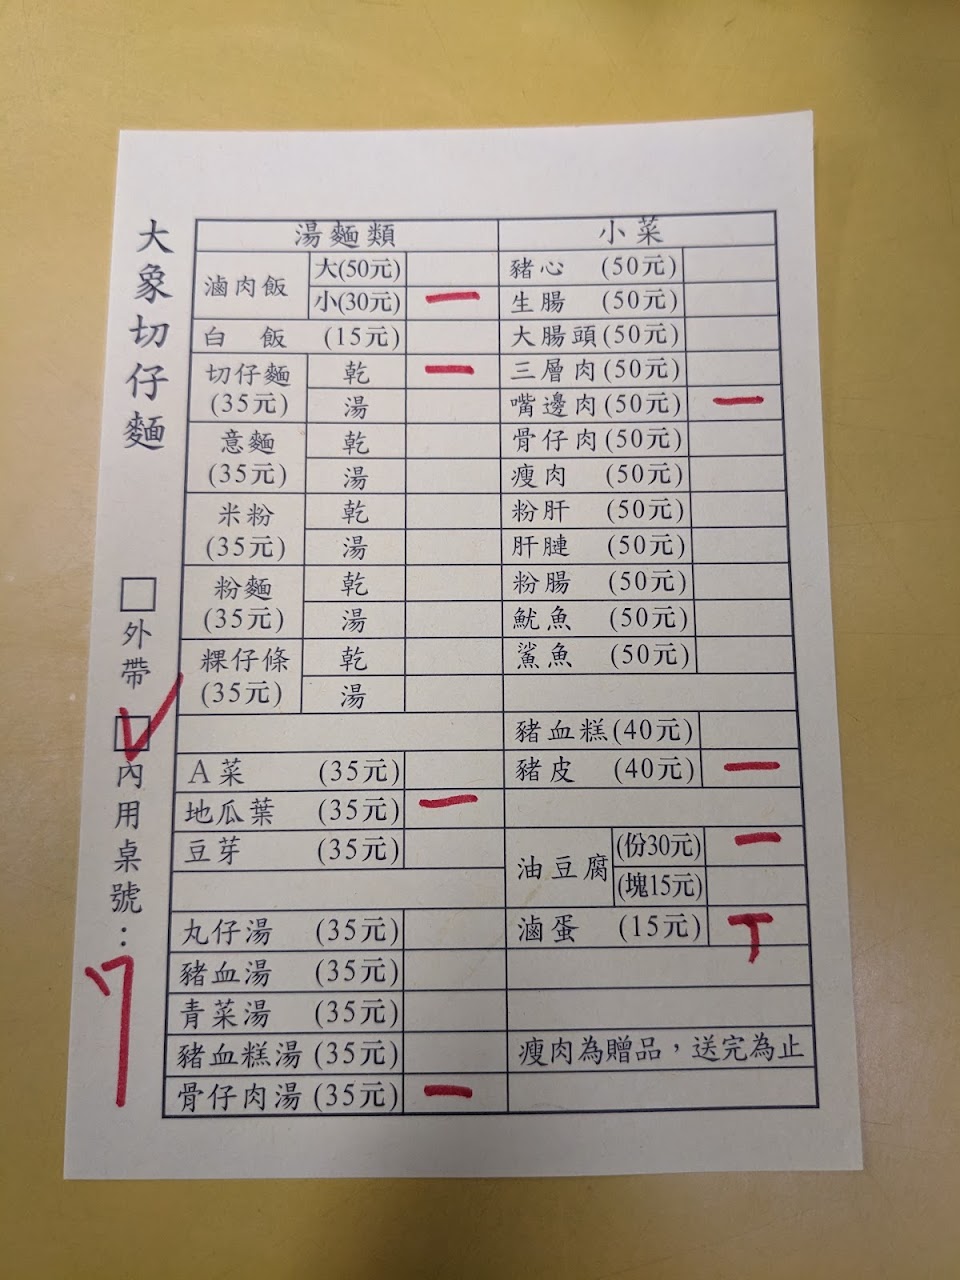 大象切仔麵
□外帶
☑內用桌號：7
湯麵類
滷肉飯 大(50元)
小(30元) 一
白飯 (15元)
切仔麵 (35元) 乾 一
湯
意麵 (35元) 乾
湯
米粉 (35元) 乾
湯
粉麵 (35元) 乾
湯
粿仔條 (35元) 乾
湯
A菜 (35元)
地瓜葉 (35元) 一
豆芽 (35元)
丸仔湯 (35元)
豬血湯 (35元)
青菜湯 (35元)
豬血糕湯 (35元)
骨仔肉湯 (35元) 一
小菜
豬心 (50元)
生腸 (50元)
大腸頭 (50元)
三層肉 (50元)
嘴邊肉 (50元) 一
骨仔肉 (50元)
瘦肉 (50元)
粉肝 (50元)
肝腱 (50元)
粉腸 (50元)
魷魚 (50元)
鯊魚 (50元)
豬血糕 (40元)
豬皮 (40元) 一
油豆腐 (份30元) 一
(塊15元)
滷蛋 (15元) 丅
瘦肉為贈品，送完為止